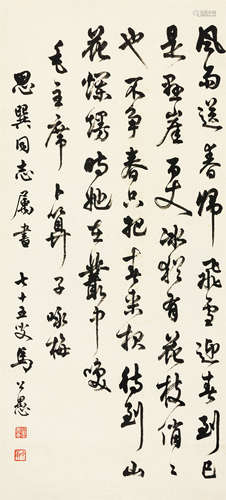 風雨送春歸飛雪迎春到已
是懸崖百丈冰猶有花枝俏〻
也不爭春只把春來報待到山
花爛熳時她在叢中笑
毛主席卜算子咏梅
思巽同志属書 七十五叟馬公愚